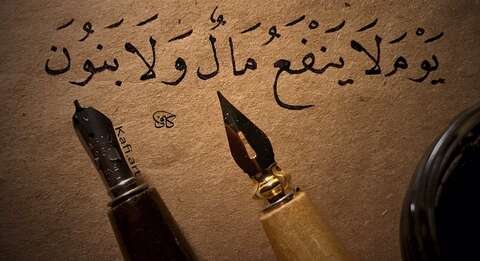 يَوْمَ لَا يَنْفَعُ مَالٌ وَلَا بَنُونَ
كافي
Kafi.art